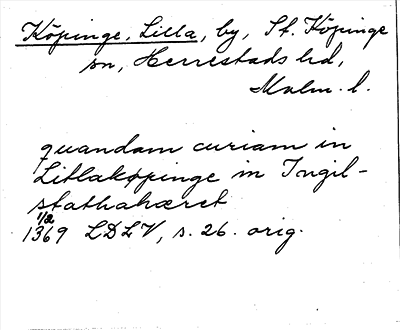 Köpinge, Lilla, by, St. Köpinge
sn, Herrestads hd,
Malm. l.
quandam curiam in
Litlakøpinge in Ingil-
stathahæret
1/2
1369 LDLV, s. 26. orig.